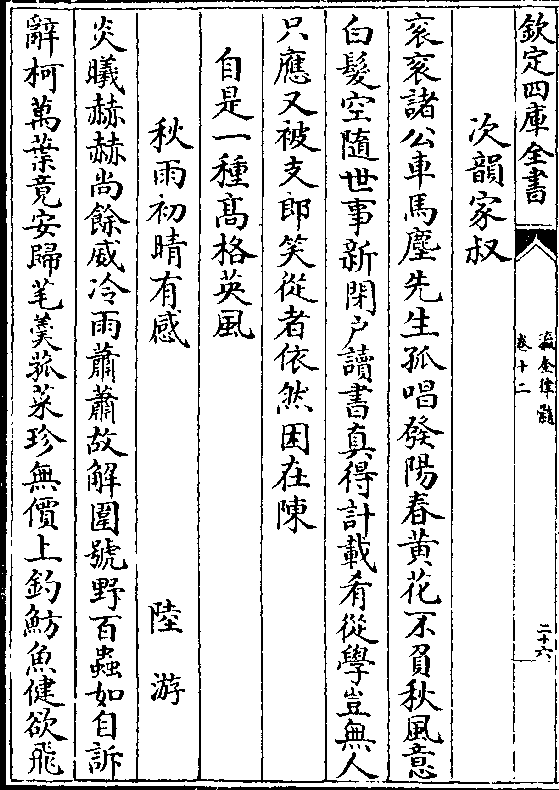 欽定四庫全書
瀛奎律髓
卷十二
二十六
次韻家叔
衮衮諸公車馬塵先生孤唱發陽春黄花不負秋風意
白髮空隨世事新閉户讀書真得計載肴從學豈無人
只應又被支郎笑從者依然困在陳
自是一種髙格英風
秋雨初晴有感 陸游
炎曦赫赫尚餘威冷雨蕭蕭故解圍號野百蟲如自訴
辭柯萬葉竟安歸芼羮菰菜珍無價上釣魴魚健欲飛